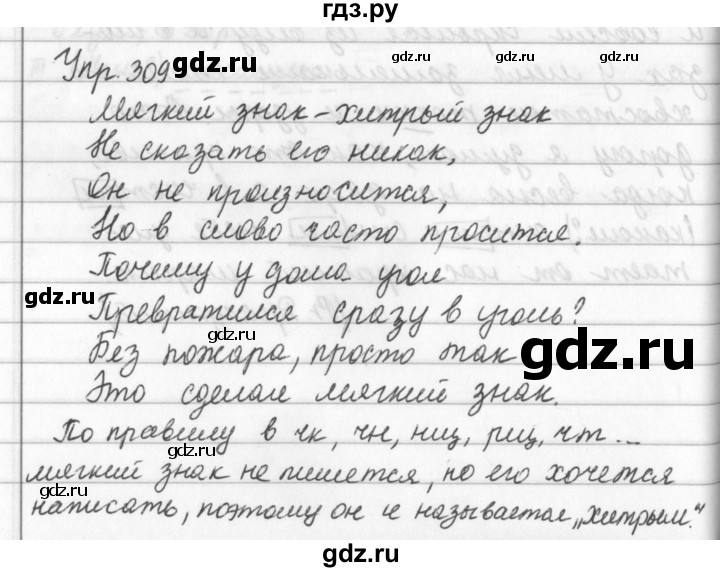 гдз.ру
Упр. 309
gdz.ru
Мягкий знак – хитрый знак
gdz.ru
Не сказать его никак,
Он не произносится,
gdz.ru
gdz.ru
Но в слово часто просится.
Почему у дома угол
gdz.ru
Превратился сразу в уголь?
gdz.ru
Без пожара, просто так
gdz.ru
Это сделал мягкий знак.
По правилу в чк, чн, нщ, рщ, чт...
gdz.ru
gdz.ru
мягкий знак не пишется, но его хочется
написать, поэтому он и называется „хитрым."
gdz.ru
gdz.ru